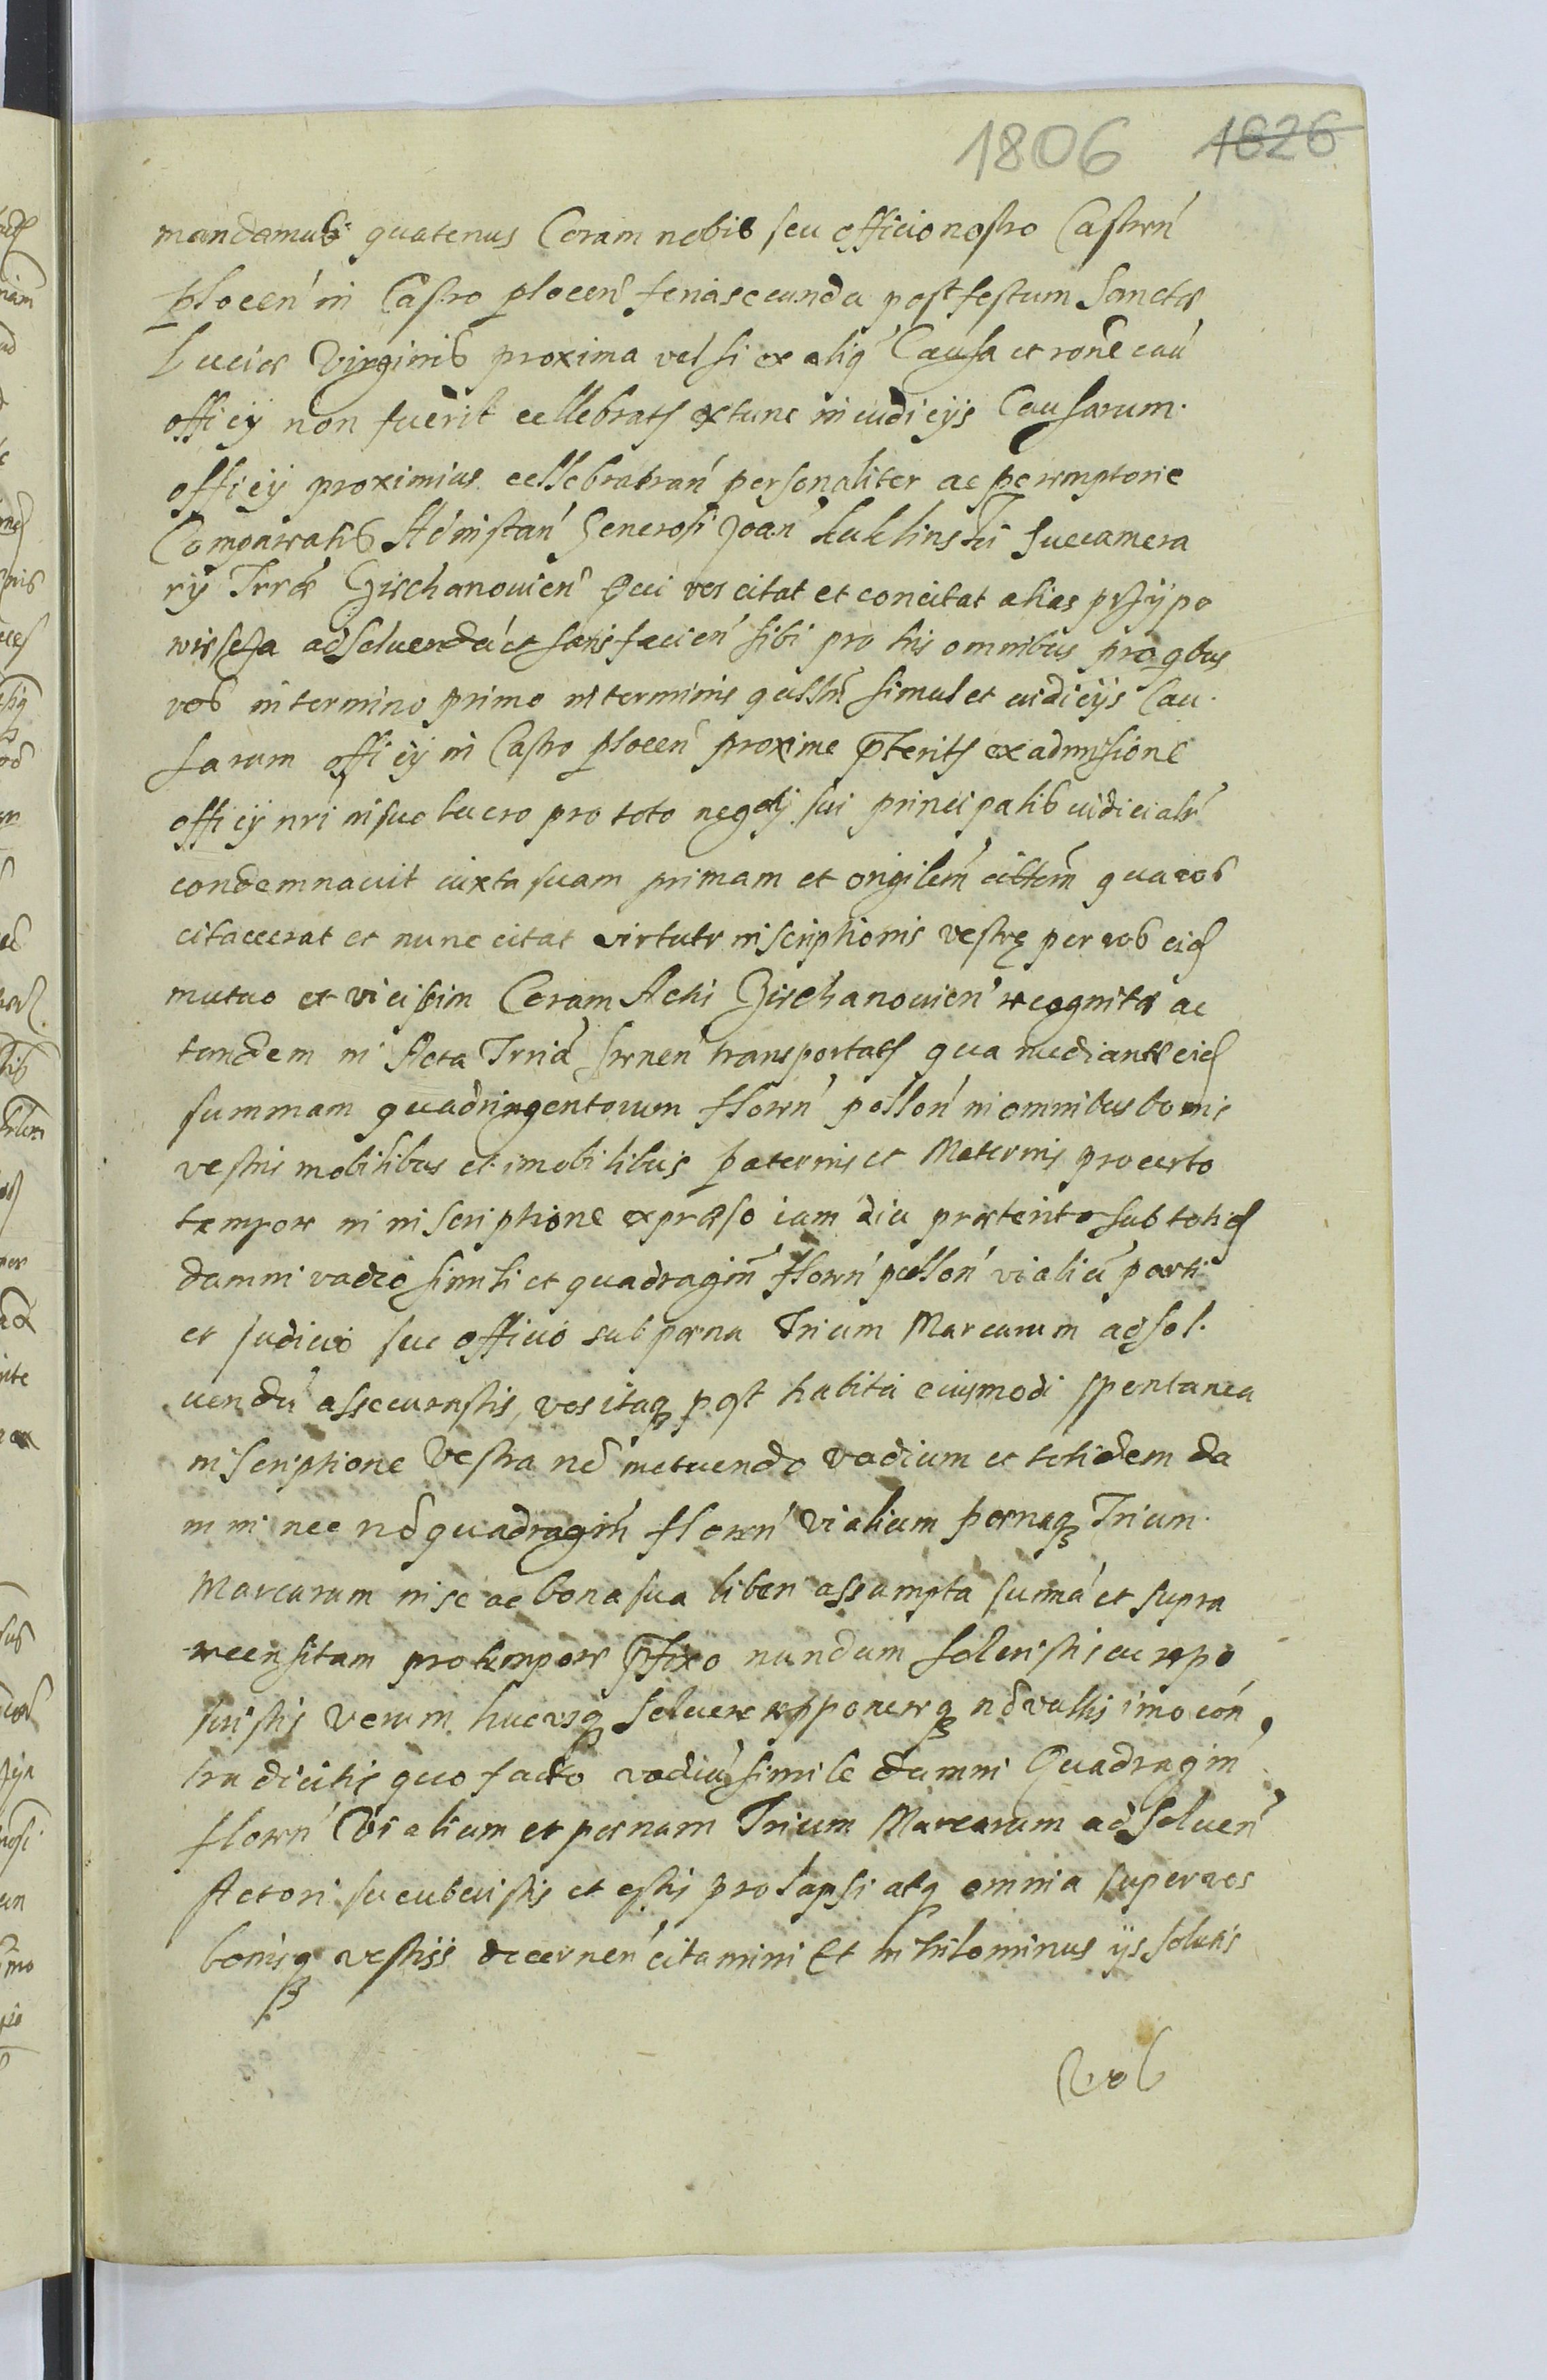 1806 1826
mandamus quatenus Coram nobis seu officio nostro Castren
plocen in Castro plocen feria secunda post festum Sanctæ
Luciæ Virginis proxima vel si ex aliq Causa et rone eaū
officy non fuerit cellebrat extunc in iudicys Causarum
officy proximius cellebratran personaliter ac peremptorie
Compareatis Ad instan Generosi Joan kuklinski Succamera
ry Trræ Ziechanouien Qui vos citat et concitat alias przypo
wiescza ad soluendū et satisfacien sibi pro his omnibus pro qbus
vos in termino primo in terminis qullm simul et iudicys Cau
sarum officy in Castro plocen proxime pterit ex admisione
officy nri in suo lucro pro toto negoty sui principalis iudicialr
condemnauit iuxta suam primam et origilem cittem qua vos
citaueerat et nunc citat virtute inscriptionis vestrę per vos eid
mutuo et vicissim Coram Actis Ziechanouien recognitæ ac
tandem in Acta Trria Srenen transportat qua mediante eid
summam quadringentorum floren pollon in omnibus bonis
vestris mobilibus et imobilibus paternis et Maternis pro certo
tempore in inscriptione expræso iam diu præterito sub totid
damni vadio simili et quadragin floren pollon vialiū parti
et Judicio seu officio sub poena Trium Marcarum ad sol
uendū assecurastis, vos itaq post habita eiusmodi spontanea
inscriptione Vestra nō metuendo vadium et totidem da
mni nec nō quadragin floren Vialium poenaq Trium
Marcarum in se ac bona sua liberi assumpta sumā et supra
recensitam pro tempore pfixo nundum soluistis ac repo
suistis verum hucusq soluere repponereq nō vultis imo con
tradicitis quo facto vadiū simile damni Quadragin
floren Vialium et poenam Trium Marcarum ad soluen
Actori sucubuistis et estis prolapsi atq omnia super vos
bonisq vestris decernen citamini Et nihilominus ys solutis
Vos